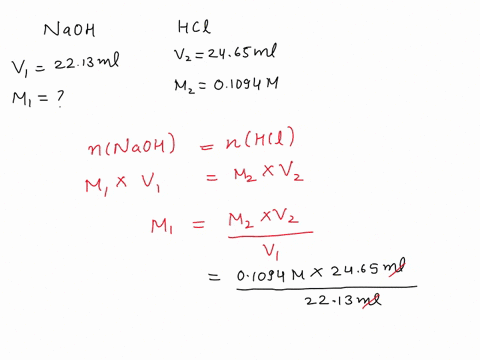 NaOH HCl
V₁ = 22.13 ml V₂ = 24.65 ml
M₁ = ? M₂ = 0.1094 M
n(NaOH) = n(HCl)
M₁ × V₁ = M₂ × V₂
M₁ = M₂ × V₂
V₁
= 0.1094 M × 24.65 ml
22.13 ml